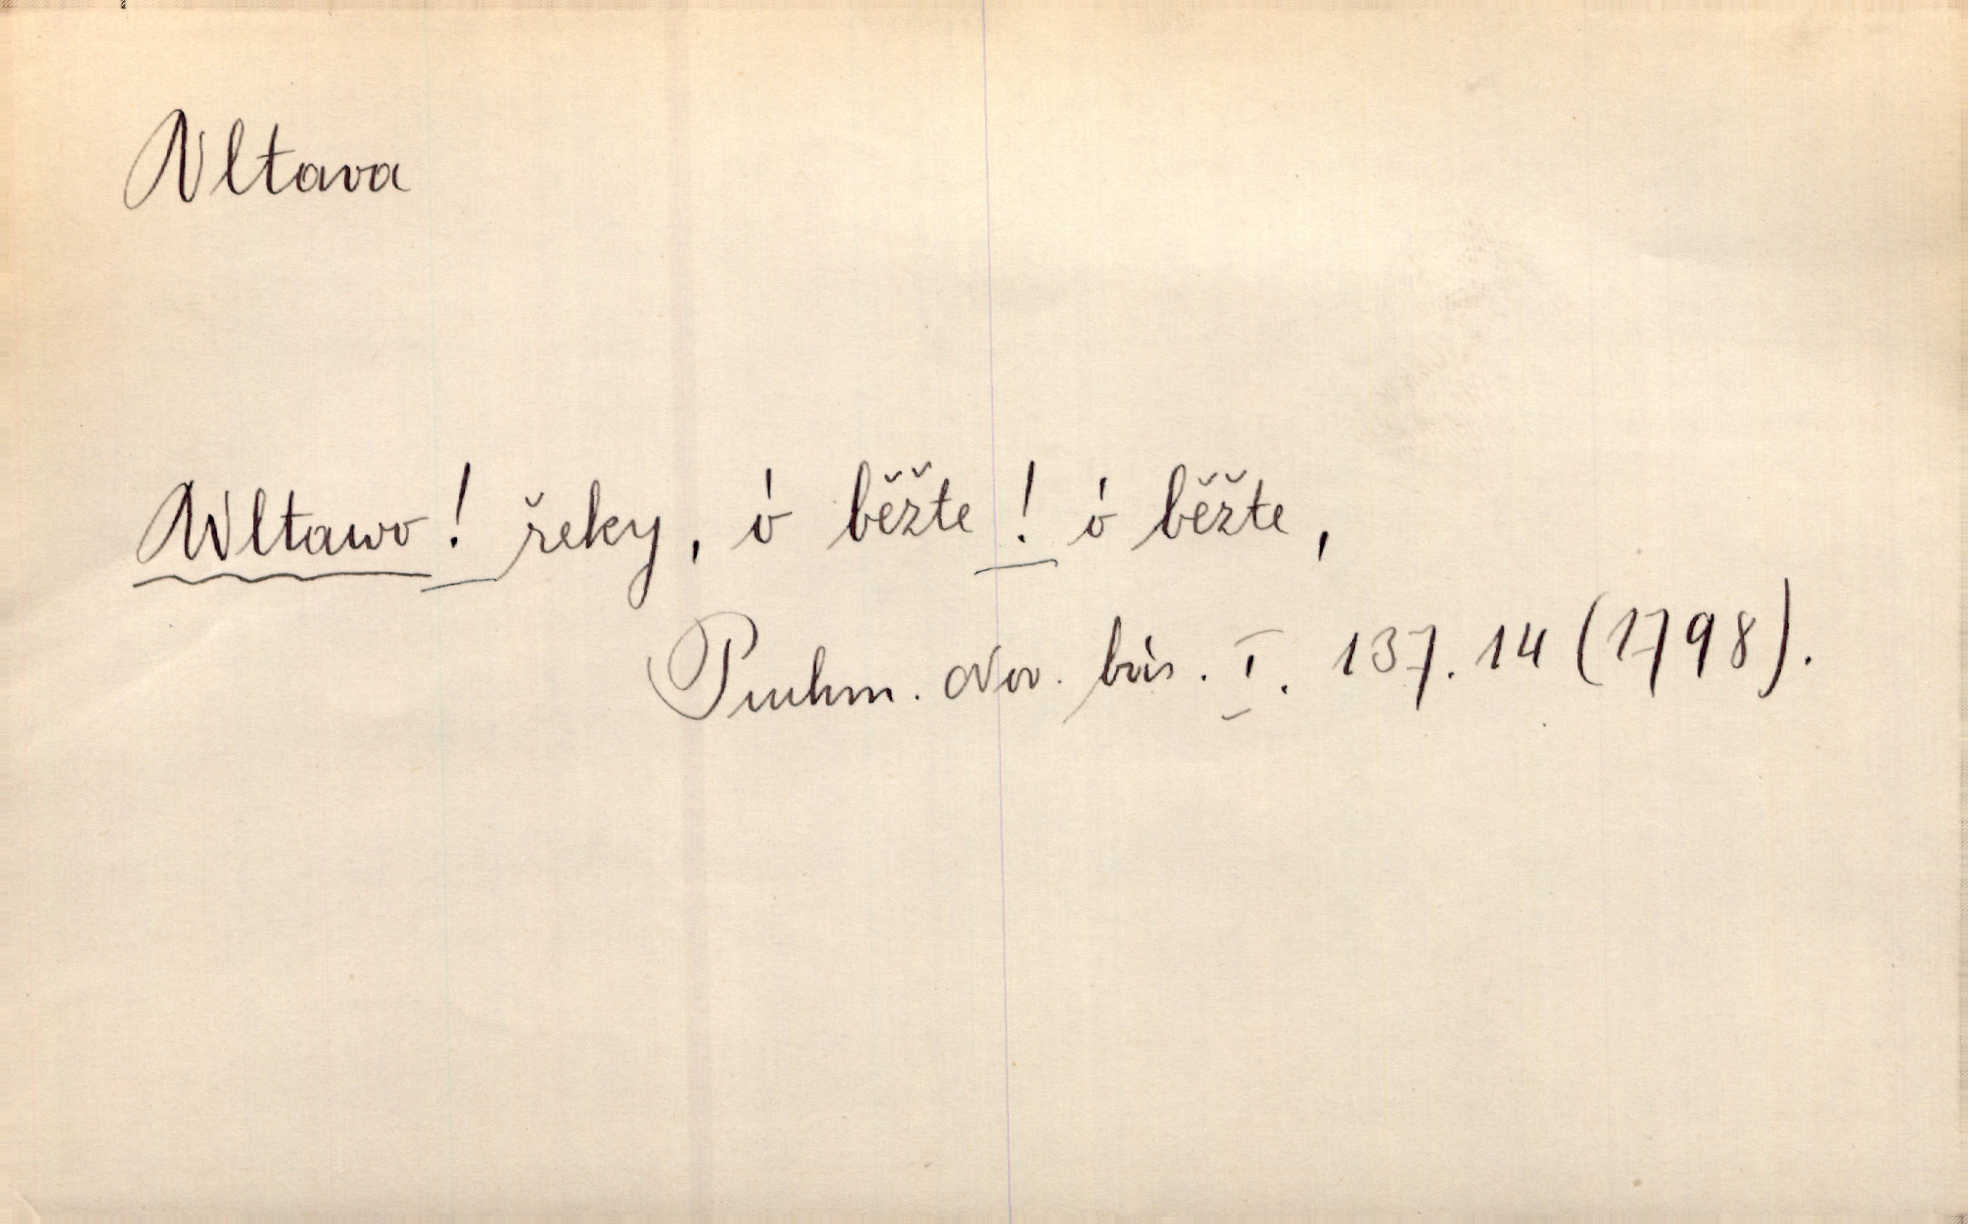 Vltava
Wltawo! řeky, ó běžte! ó běžte,
Puchm. Nov. bás. I. 137. 14 (1798).